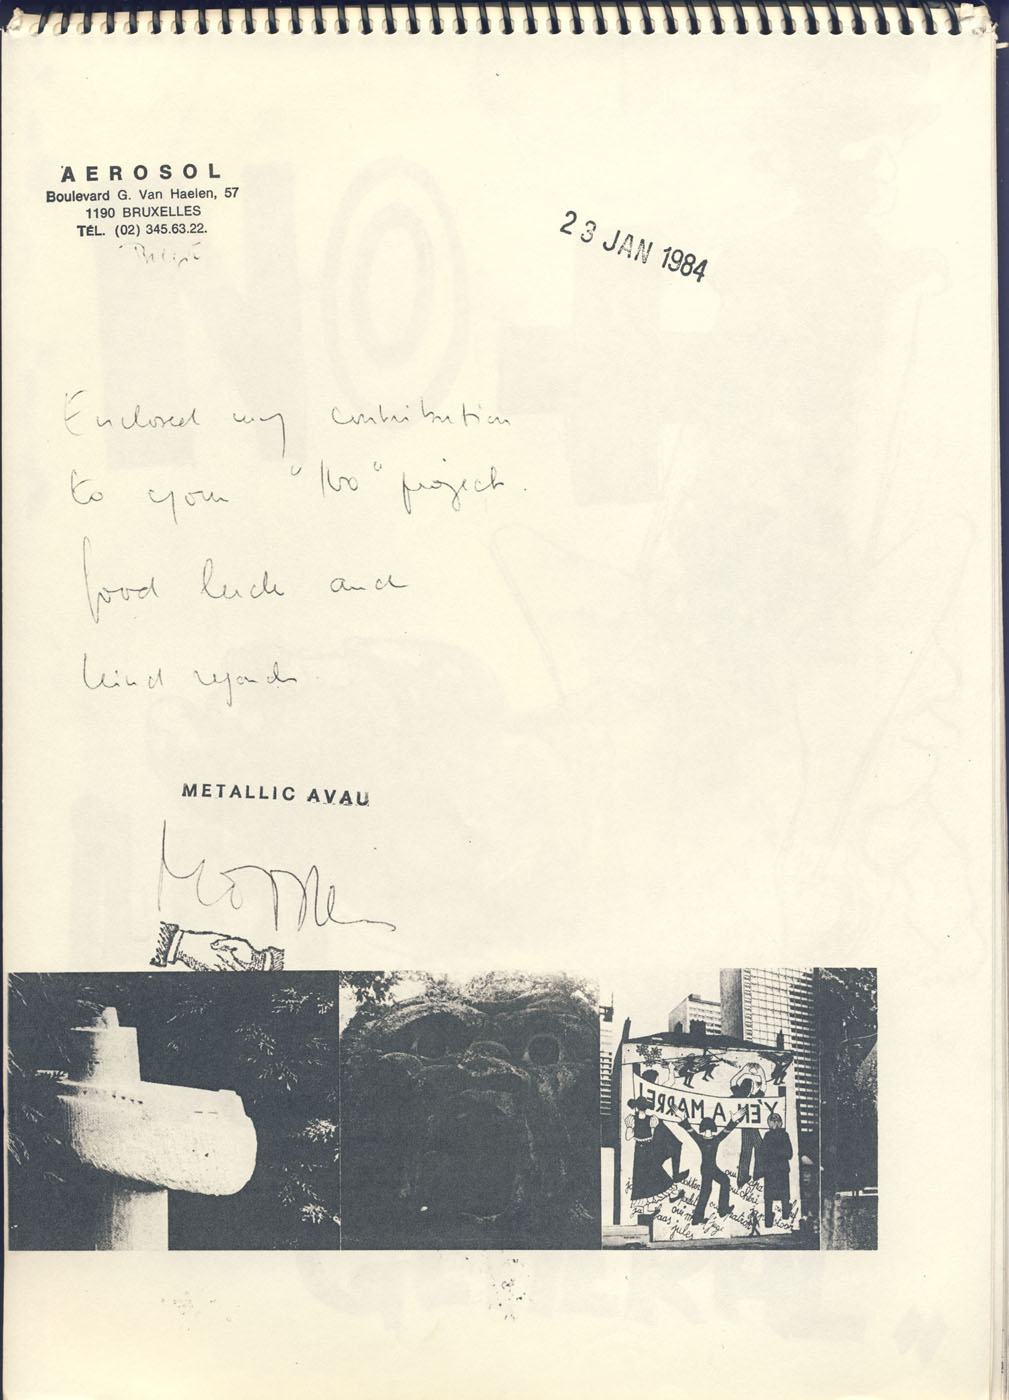 AEROSOL
Boulevard G. Van Haelen, 57
1190 BRUXELLES
TÉL. (02) 345.63.22.
België
23 JAN 1984
Enclosed my contribution
to your " " project.
good luck and
kind regards
METALLIC AVAU
Y'EN A MARRE!
jules